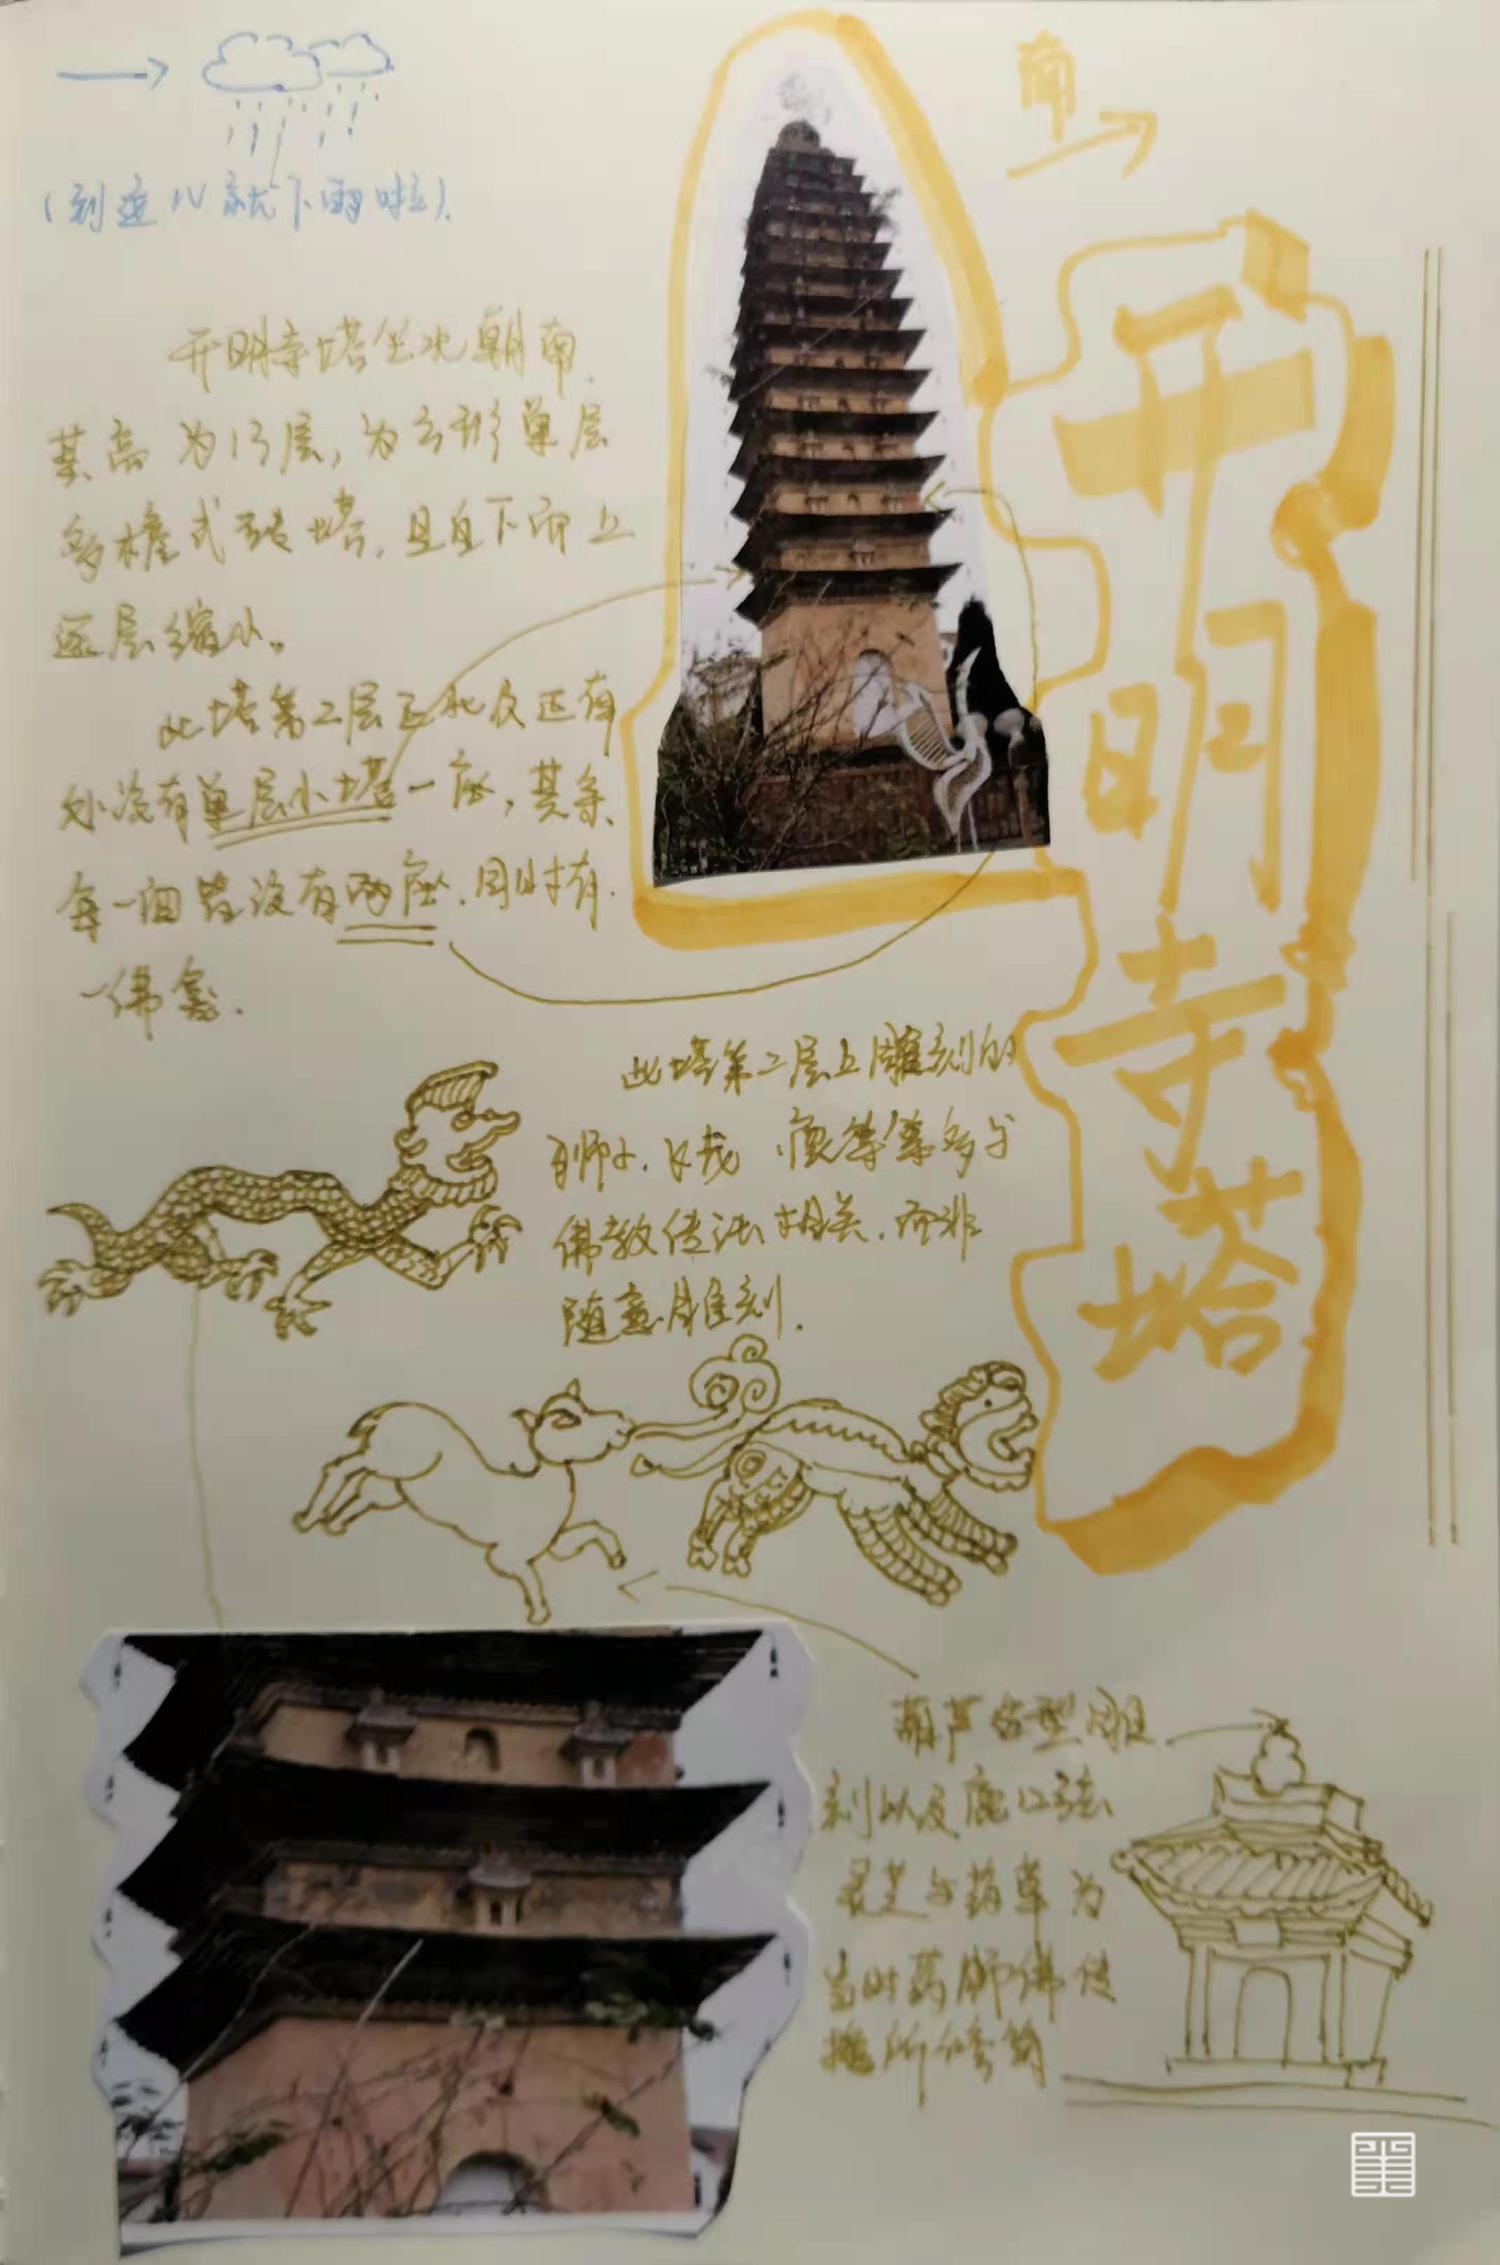 (到这儿就下雨啦).
南
开明寺塔
开明寺塔坐北朝南.
其高为13层,为方形单层
多檐式砖塔,且自下而上
逐层缩小。
此塔第二层正北及正南
处设有单层小塔一座,其余
每一面皆设有两座.同时有
一佛龛.
此塔第二层上雕刻的
狮子、飞龙、鹿等等多与
佛教传说相关.而非
随意雕刻.
葫芦造型雕
刻以及鹿口衔
灵芝与药草为
当时药师佛传
播所